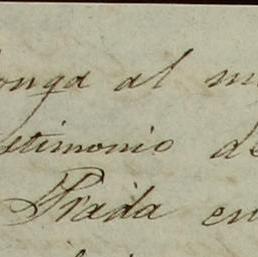 onga al m
etimonio de
Prada en